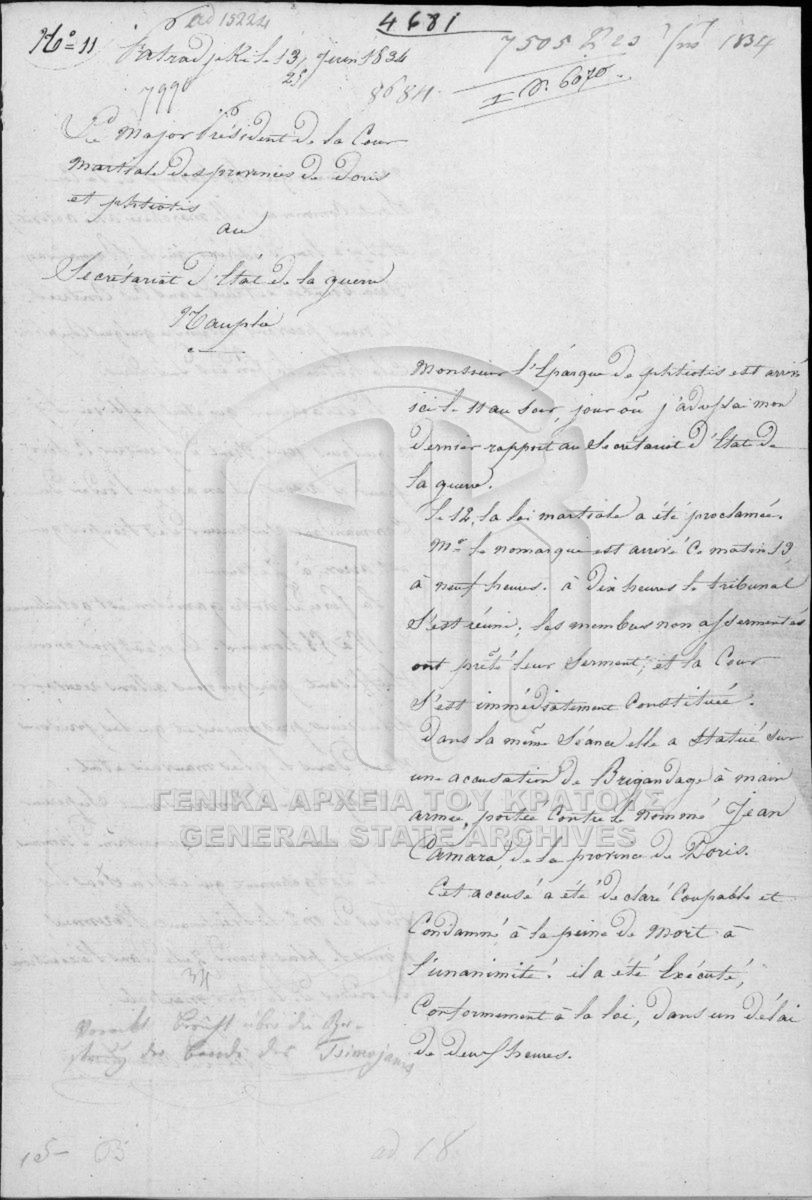 ad 15224
4681
No 11
Patradjeki le 13/25 Juin 1834
7505 Des 1834
799
8684
I N. 6070.
Le Major Président de la Cour
Martiale des provinces de Doris
et phtiotis
au
Secrétariat d'Etat de la guerre
Nauplie
Monsieur l'Eparque de phtiotis est arrivé
ici le 11 au soir, jour où j'adressai mon
dernier rapport au Secrétariat d'Etat de
la guerre.
le 12, la loi martiale a été proclamée.
Mr le nomarque est arrivé ce matin 13,
à neuf heures. à dix heures le tribunal
s'est réuni, les membres non assermentés
ont prêté leur serment, et la Cour
s'est immédiatement constituée.
Dans la même séance elle a statué sur
une accusation de Brigandage à main
armée, portée contre le nommé Jean
Camara, de la province de Doris.
Cet accusé a été déclaré coupable et
condamné à la peine de mort à
l'unanimité. il a été exécuté,
conformement à la loi, dans un délai
de deux heures.
ΓΕΝΙΚΑ ΑΡΧΕΙΑ ΤΟΥ ΚΡΑΤΟΥΣ
GENERAL STATE ARCHIVES
Bericht über die
der Bande des Tsimojanis
15
ad 18